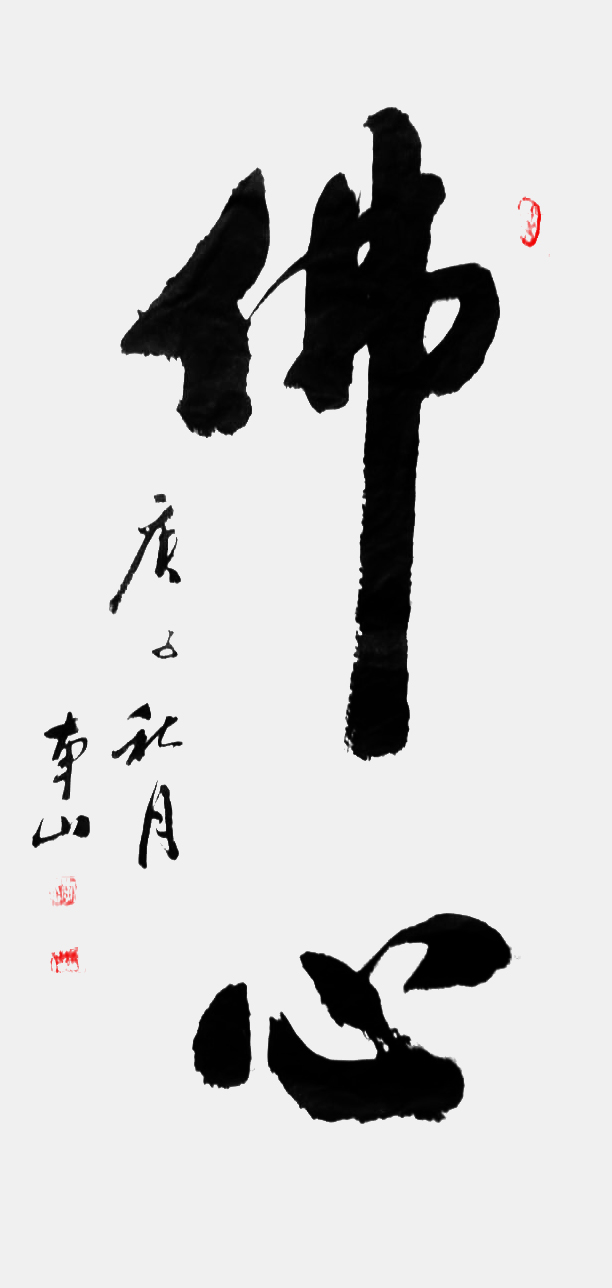 佛心
庚子秋月
南山